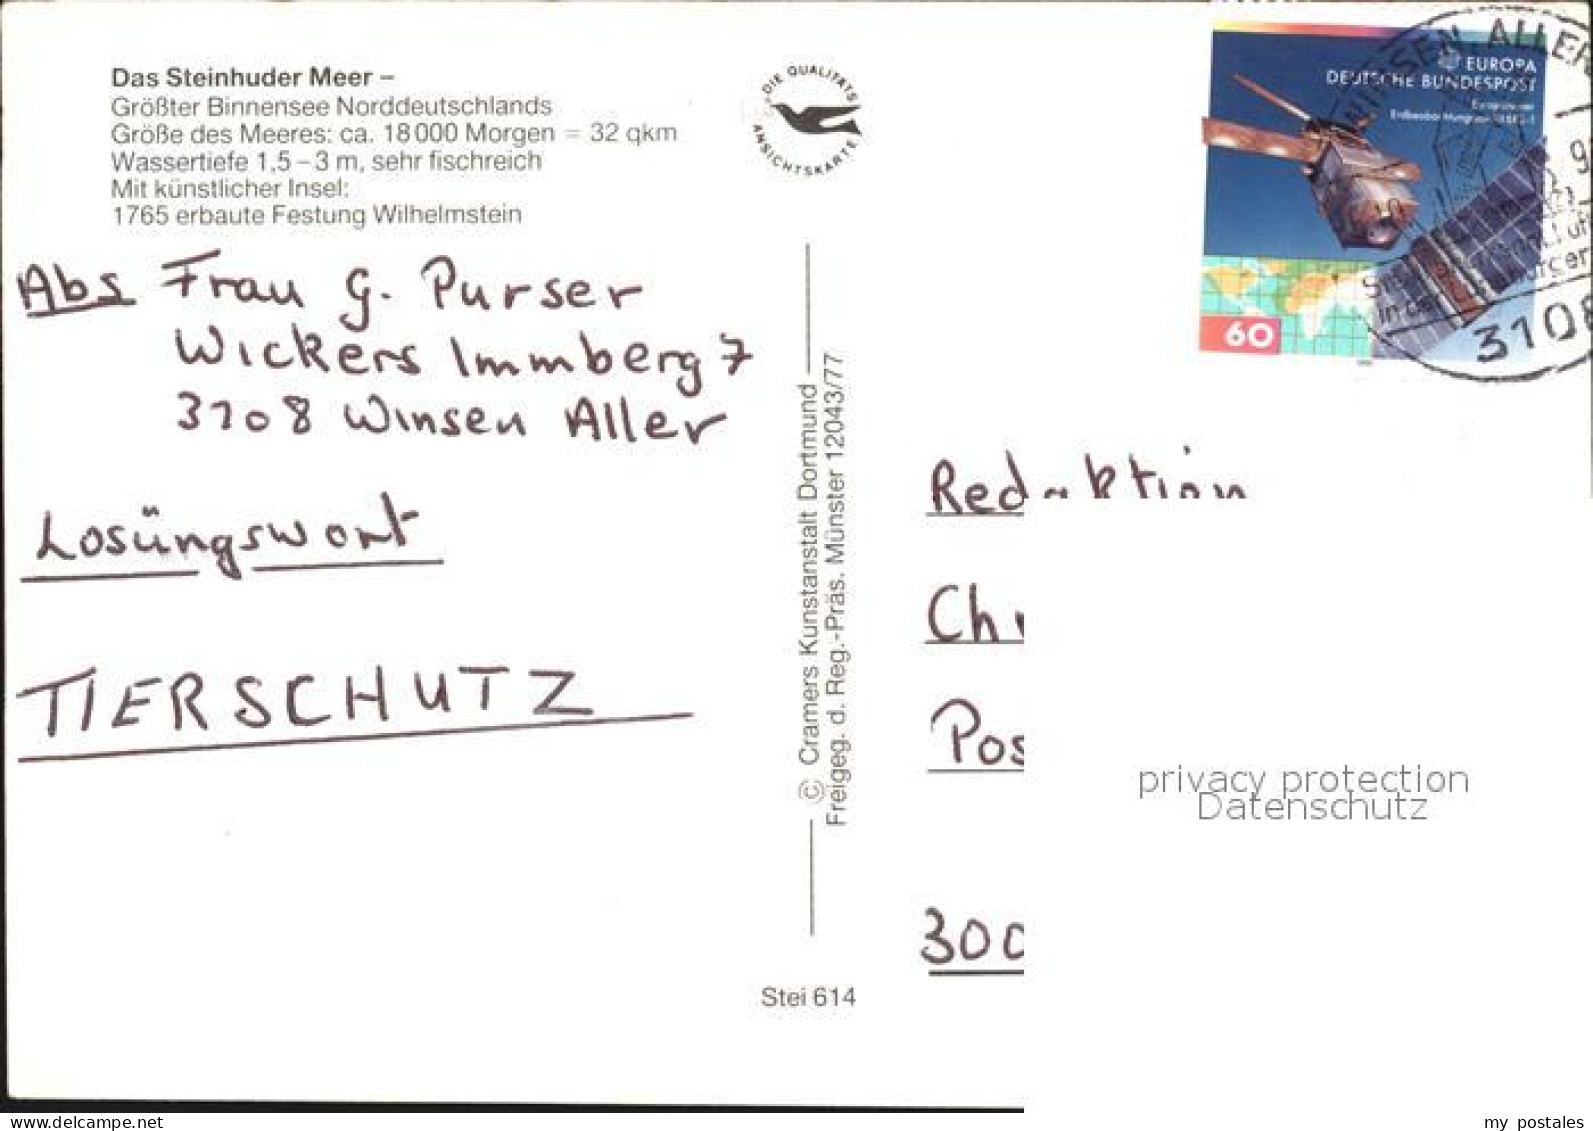 Das Steinhuder Meer –
Größter Binnensee Norddeutschlands
Größe des Meeres: ca. 18 000 Morgen = 32 qkm
Wassertiefe 1,5 – 3 m, sehr fischreich
Mit künstlicher Insel:
1765 erbaute Festung Wilhelmstein
DIE QUALITÄTS
ANSICHTSKARTE
Abs Frau G. Purser
Wickers Immberg 7
3108 Winsen Aller
Losüngswort
TIERSCHUTZ
© Cramers Kunstanstalt Dortmund
Freigeg. d. Reg.-Präs. Münster 12043/77
Stei 614
EUROPA
DEUTSCHE BUNDESPOST
60
WINSEN, ALLER
3108
Redaktion
Ch
Pos
300
privacy protection
Datenschutz
delcampe.net
my_postales